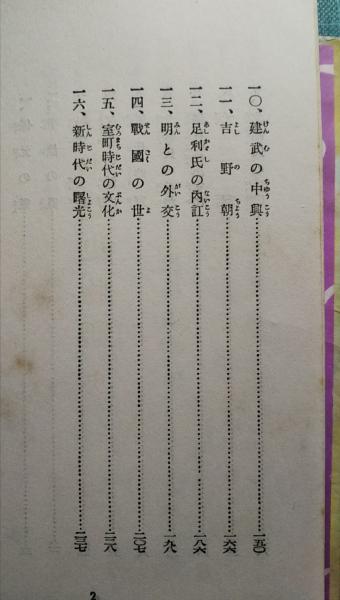 一〇、建武の中興……一五〇
一一、吉野朝……一六六
一二、足利氏の内訌……一八六
一三、明との外交……一九九
一四、戰國の世……二〇七
一五、室町時代の文化……二二六
一六、新時代の曙光……二三七
2